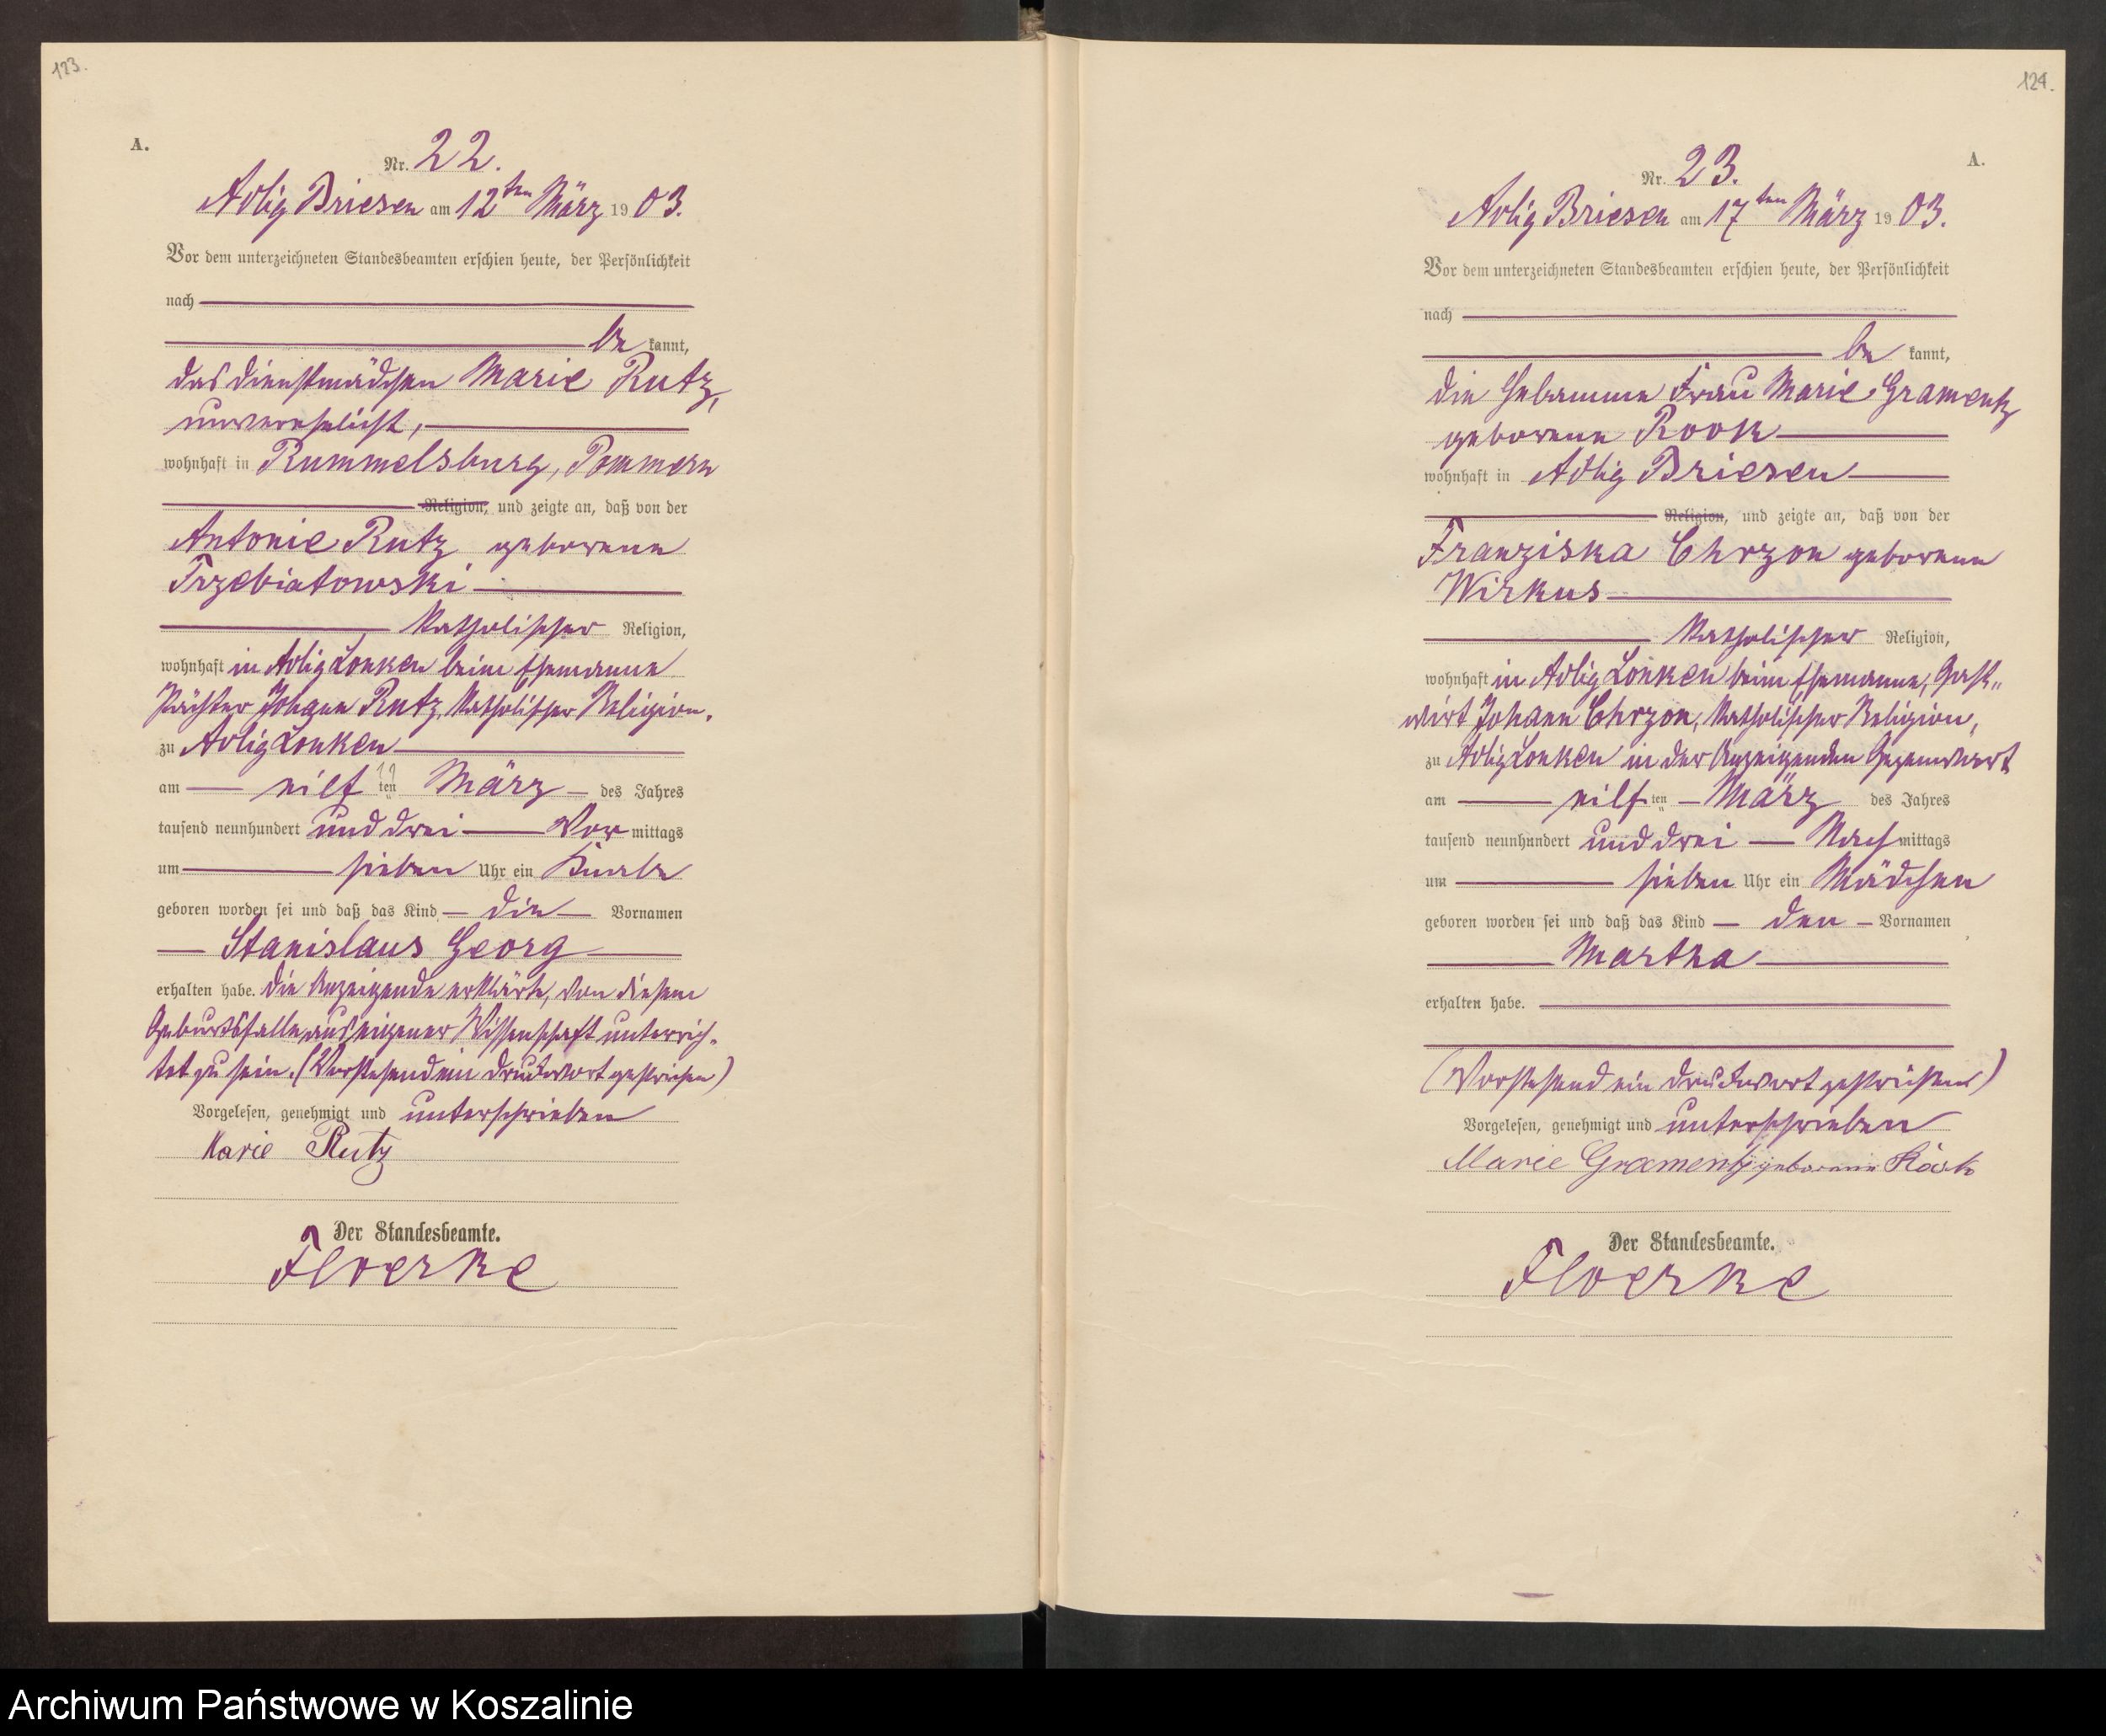 123.
A.
Nr. 22.
Adlig Briesen am 12ten März 1903.
Vor dem unterzeichneten Standesbeamten erschien heute, der Persönlichkeit
nach
be kannt,
das Dienstmädchen Marie Rutz,
unverehelicht,
wohnhaft in Rummelsburg, Pommern
Religion, und zeigte an, daß von der
Antonie Rutz geborene
Trzebiatowski
katholischer Religion,
wohnhaft in Adlig Lonken beim Ehemanne
Pächter Johann Rutz, katholischer Religion,
zu Adlig Lonken
am eilf ten März des Jahres
tausend neunhundert und drei Vor mittags
um sieben Uhr ein Knabe
geboren worden sei und daß das Kind die Vornamen
Stanislaus Georg
erhalten habe. Die Anzeigende erklärte, von diesem
Geburtsfalle aus eigener Wissenschaft unterrich-
tet zu sein. (Vorstehend ein Druckwort gestrichen)
Vorgelesen, genehmigt und unterschrieben
Marie Rutz
Der Standesbeamte.
Floerke
124.
A.
Nr. 23.
Adlig Briesen am 17ten März 1903.
Vor dem unterzeichneten Standesbeamten erschien heute, der Persönlichkeit
nach
be kannt,
die Hebamme Frau Marie Gramentz
geborene Rook
wohnhaft in Adlig Briesen
Religion, und zeigte an, daß von der
Franziska Chrzon geborene
Wirkus
katholischer Religion,
wohnhaft in Adlig Lonken beim Ehemanne, Gast-
wirt Johann Chrzon, katholischer Religion,
zu Adlig Lonken in der Anzeigenden Gegenwart
am eilf ten März des Jahres
tausend neunhundert und drei Nach mittags
um sieben Uhr ein Mädchen
geboren worden sei und daß das Kind den Vornamen
Martha
erhalten habe.
(Vorstehend ein Druckwort gestrichen)
Vorgelesen, genehmigt und unterschrieben
Marie Gramentz geborene
Der Standesbeamte.
Floerke
Archiwum Państwowe w Koszalinie